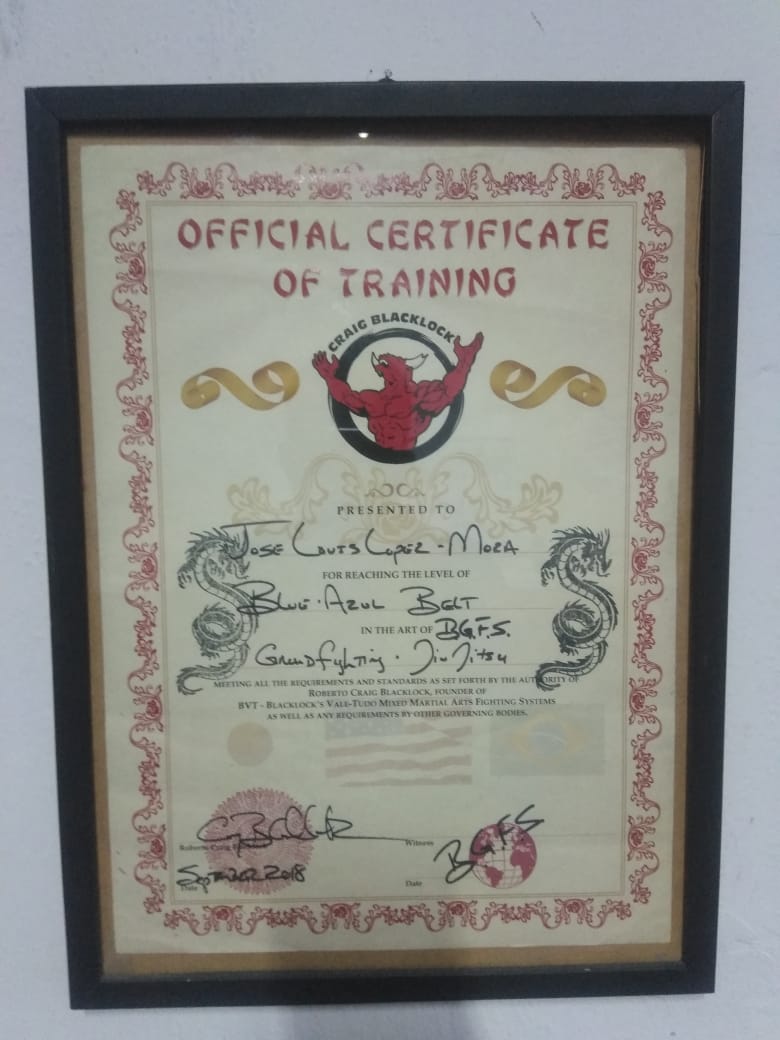 OFFICIAL CERTIFICATE
OF TRAINING
CRAIG BLACKLOCK
PRESENTED TO
JOSE LOUIS LOPEZ - MORA
FOR REACHING THE LEVEL OF
BLUE · AZUL BELT
IN THE ART OF B.G.F.S.
Groundfighting · Jiu Jitsu
MEETING ALL THE REQUIREMENTS AND STANDARDS AS SET FORTH BY THE AUTHORITY OF
ROBERTO CRAIG BLACKLOCK, FOUNDER OF
BVT - BLACKLOCK'S VALE-TUDO MIXED MARTIAL ARTS FIGHTING SYSTEMS
AS WELL AS ANY REQUIREMENTS BY OTHER GOVERNING BODIES.
Roberto Craig
Witness
BGFS
2018
Date
Date